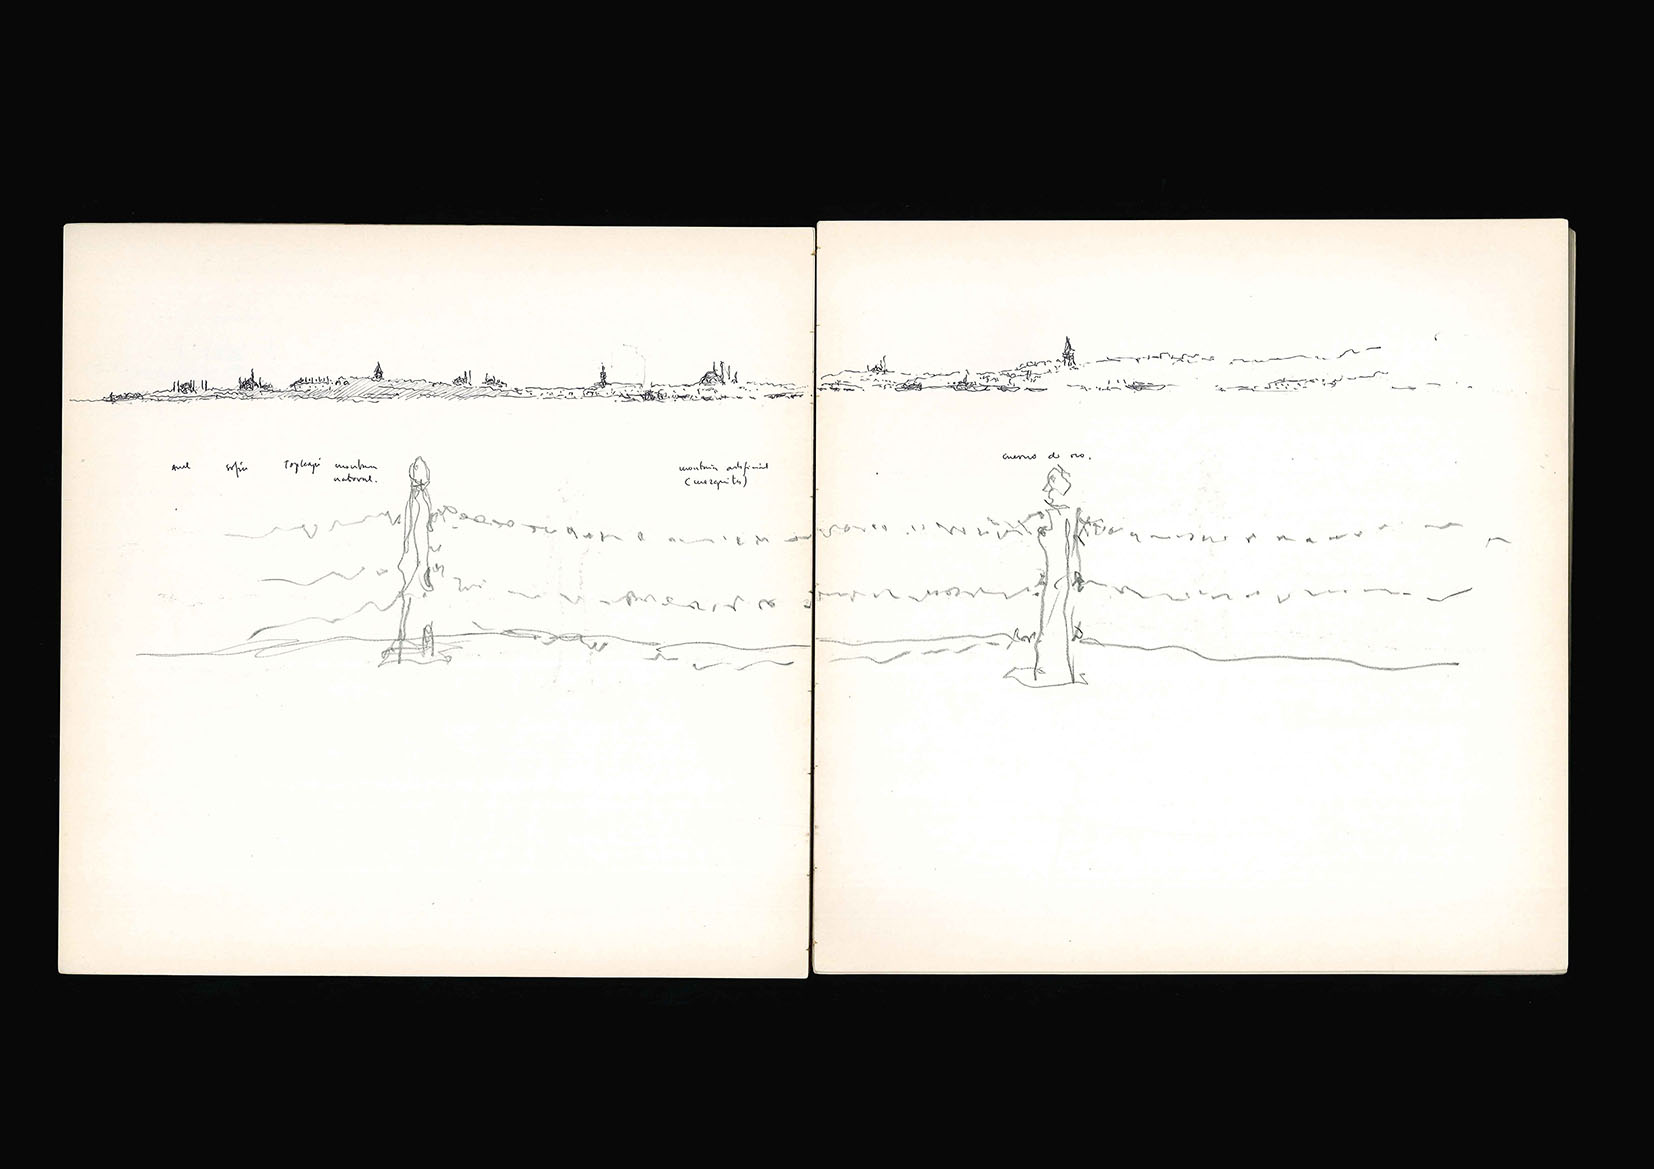 azul sofia Topkapi montaña
natural.
montaña artificial
(mezquitas)
cuerno de oro.